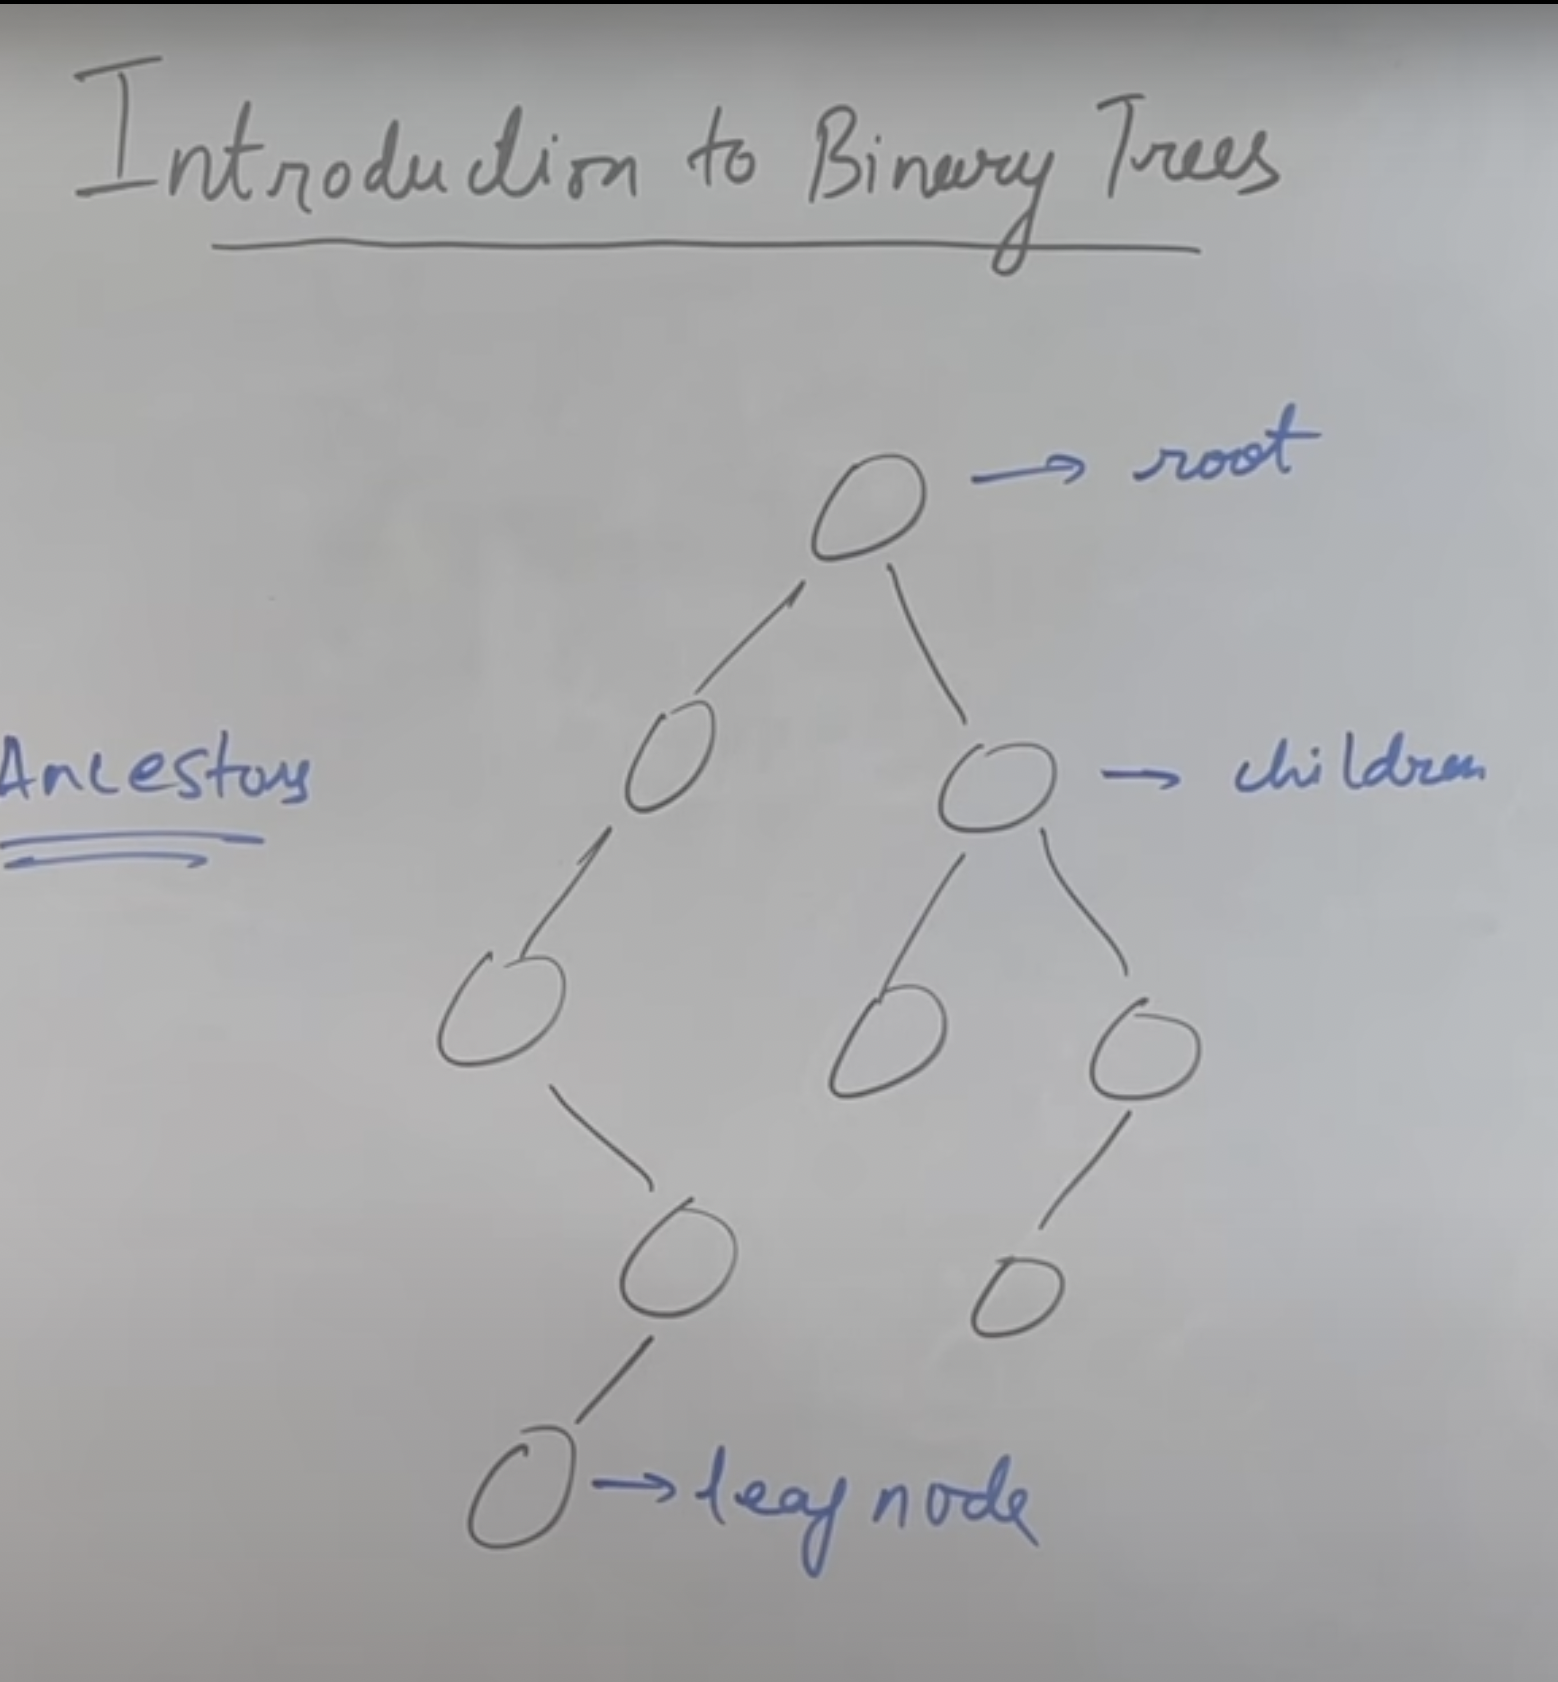 Introduction to Binary Trees
→ root
Ancestors
→ children
→ leaf node